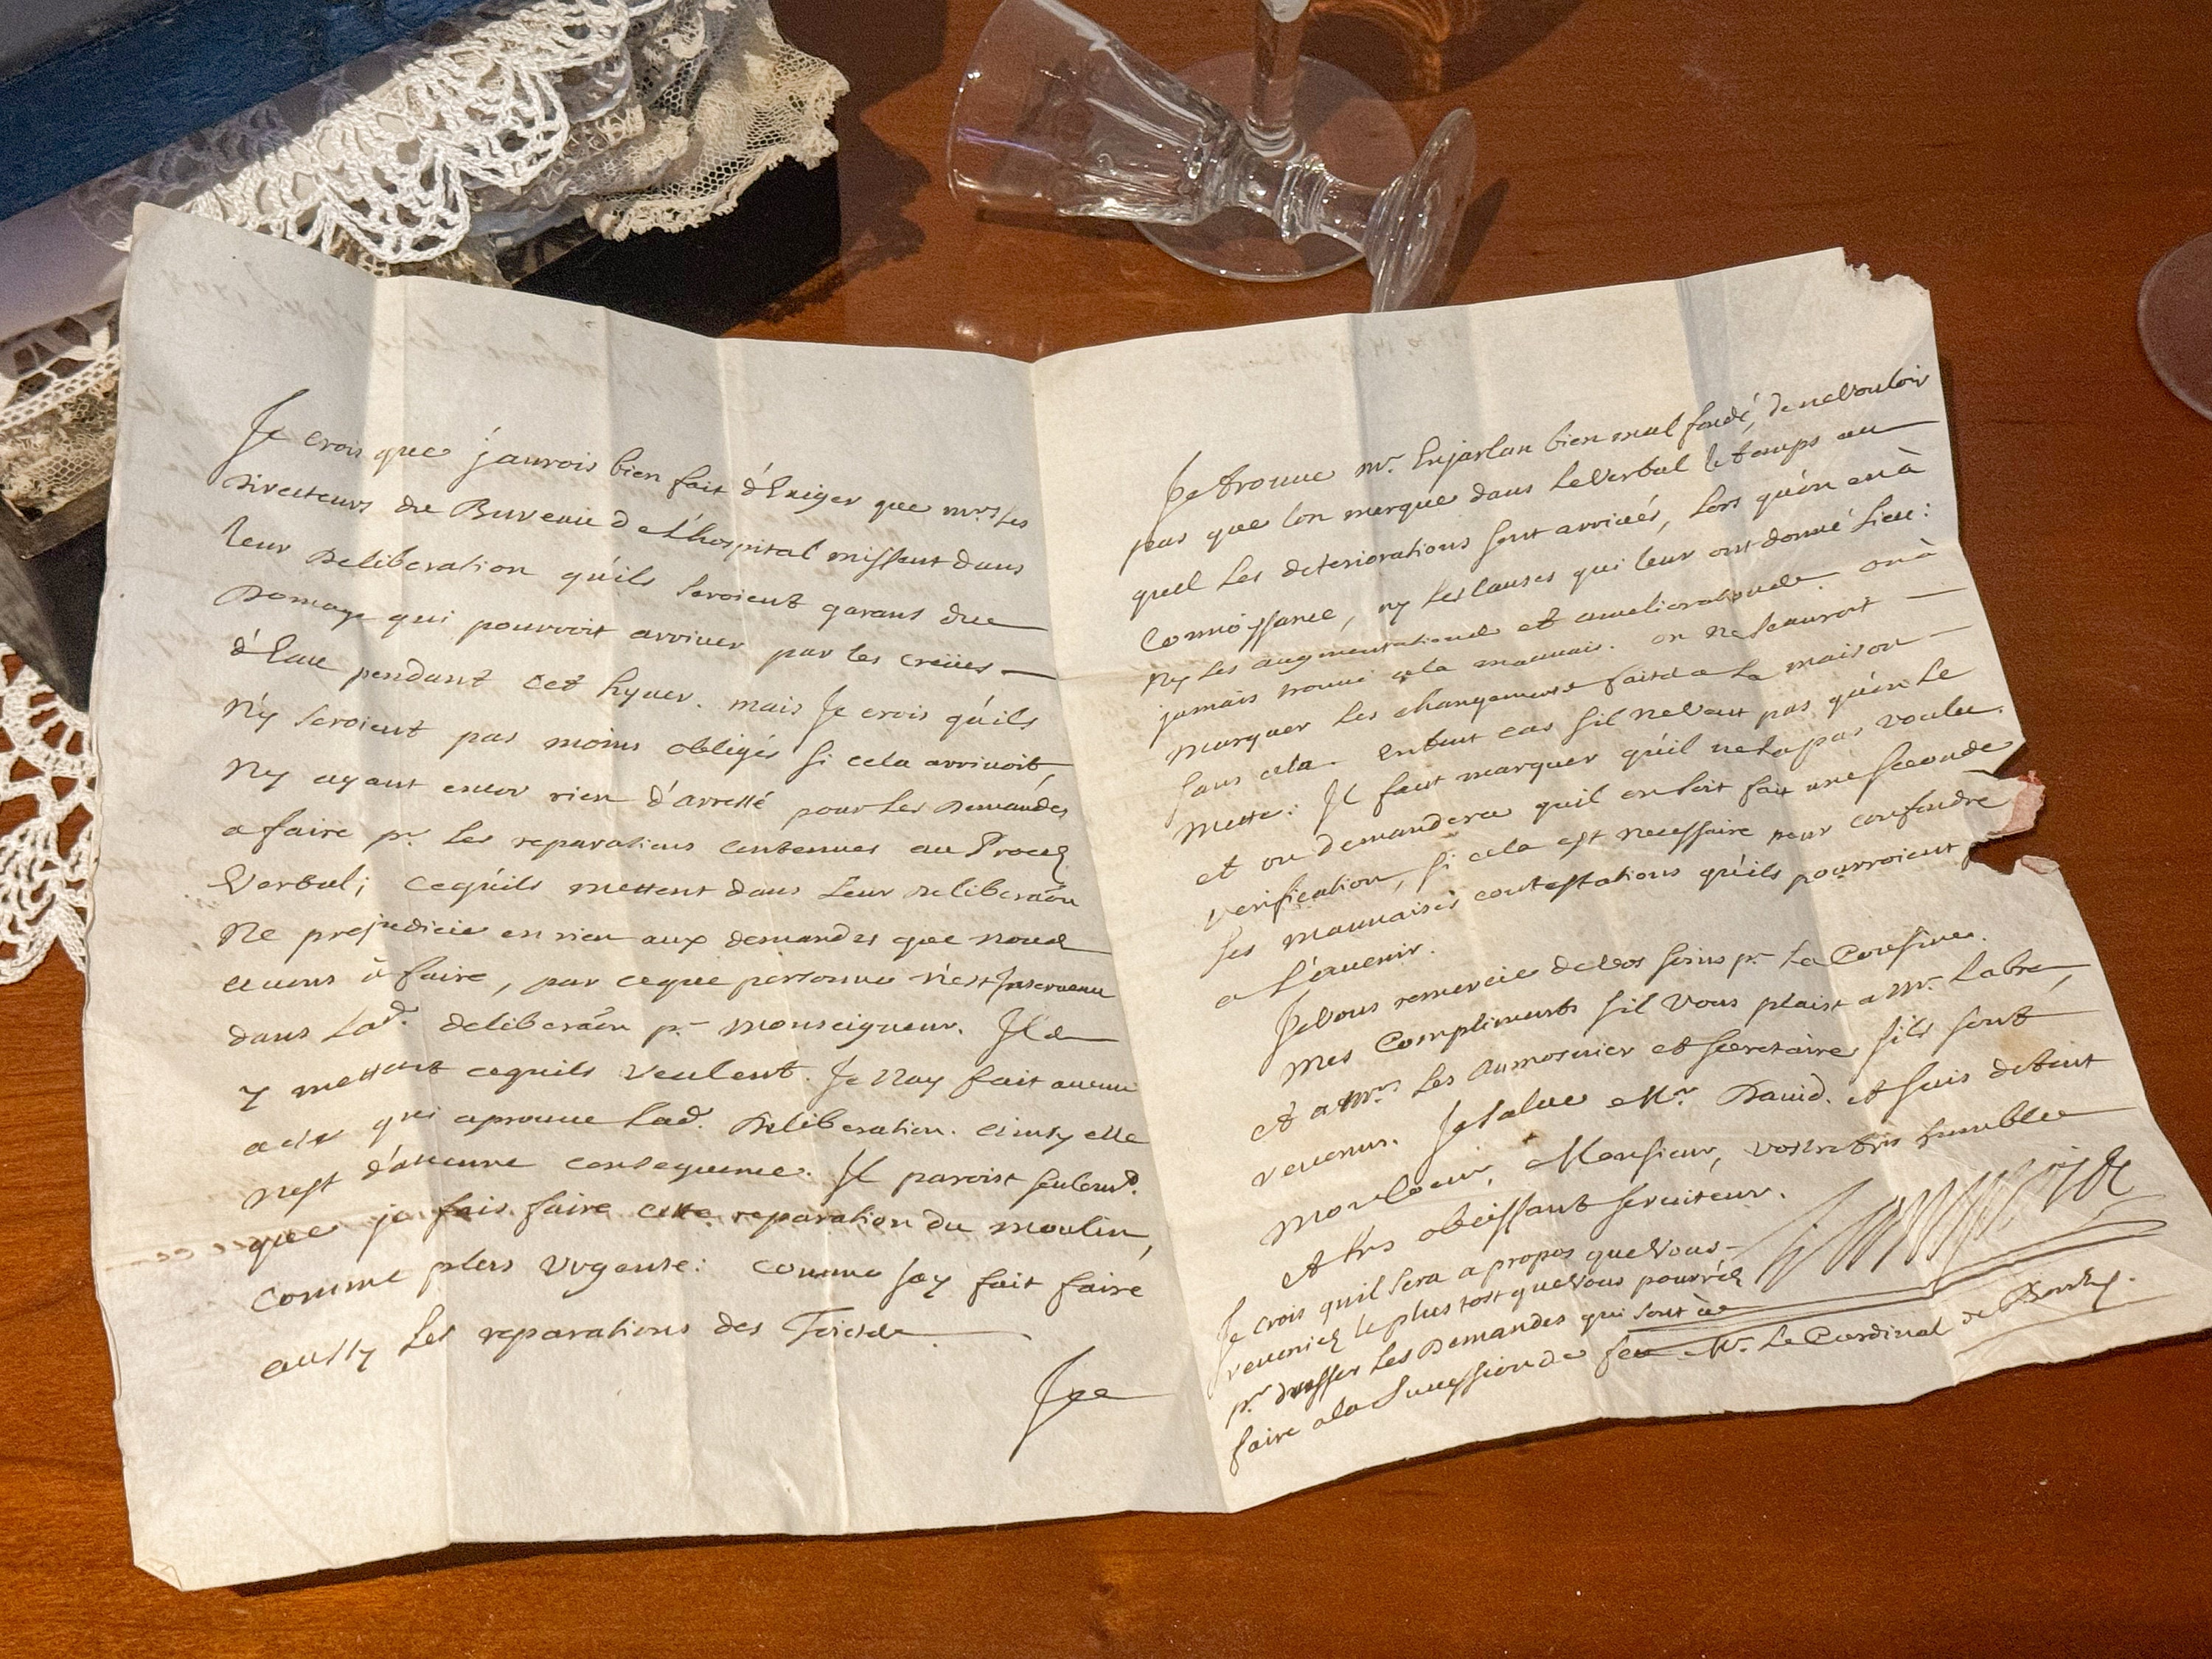 Je crois que j'aurois bien fait d'Exiger que mrs les
Directeurs du Bureau de L'hospital missent dans
leur Deliberation qu'ils seroient garans du
Domage qui pourroit arriver par les creües
d'Eau pendant cet hyuer. mais Je crois qu'ils
N'y seroient pas moins obligés si cela arriuoit,
N'y ayant encor rien d'arresté pour les Demandes
a faire pr. Les reparations contenues au Procez
Verbal; cequ'ils mettent dans Leur Deliberaôn
Ne prejudicie en rien aux demandes que nous
auons à faire, par ceque personne n'est Interuenu
dans Lad. deliberaôn pr monseigneur. Ils
y mettent cequils veulent. Je N'ay fait aucun
acte qui aprouue Lad. Deliberation. ainsy elle
n'est d'aucune consequence. Il paroist seulemt.
que je fais faire cette reparation du moulin,
comme plus urgente: comme J'ay fait faire
aussy Les reparations des Toicts.
Je
Je trouue mr. Enjarlan bien mal fondé, de ne vouloir
pas que l'on marque dans Le Verbal le temps au
quel Les deteriorations sont arriuées, Lors qu'on en à
Connoissance, ny Les causes qui leur ont donné Lieu:
Ny Les augmentations et ameliorations. on à
jamais trouué cela mauuais. on ne scauroit
Marquer Les changements faits a La maison
sans cela. En tout cas s'il ne veut pas qu'on Le
Mette: Il faut marquer qu'il ne L'a pas voulu.
et on demandera qu'il en soit fait une seconde
verification, si cela est necessaire pour confondre
ses mauuaises contestations qu'ils pourroient
a L'auenir.
Je vous remercie de vos soins pr La Cousine.
Mes Compliments s'il vous plaist a Mr. Labre,
Et a Mrs. Les Aumosnier et Secretaire s'ils sont
reuenus. Je salue Mr. Dauid. et suis de tout
Mon Coeur, Monsieur, vostre tres humble
et tres obeissant seruiteur.
Je crois qu'il sera a propos que vous
reueniez le plus tost que vous pourréz
pr. dresser Les Demandes qui sont à
faire a la Succession de feu Mr. Le Cardinal de Bonzy.